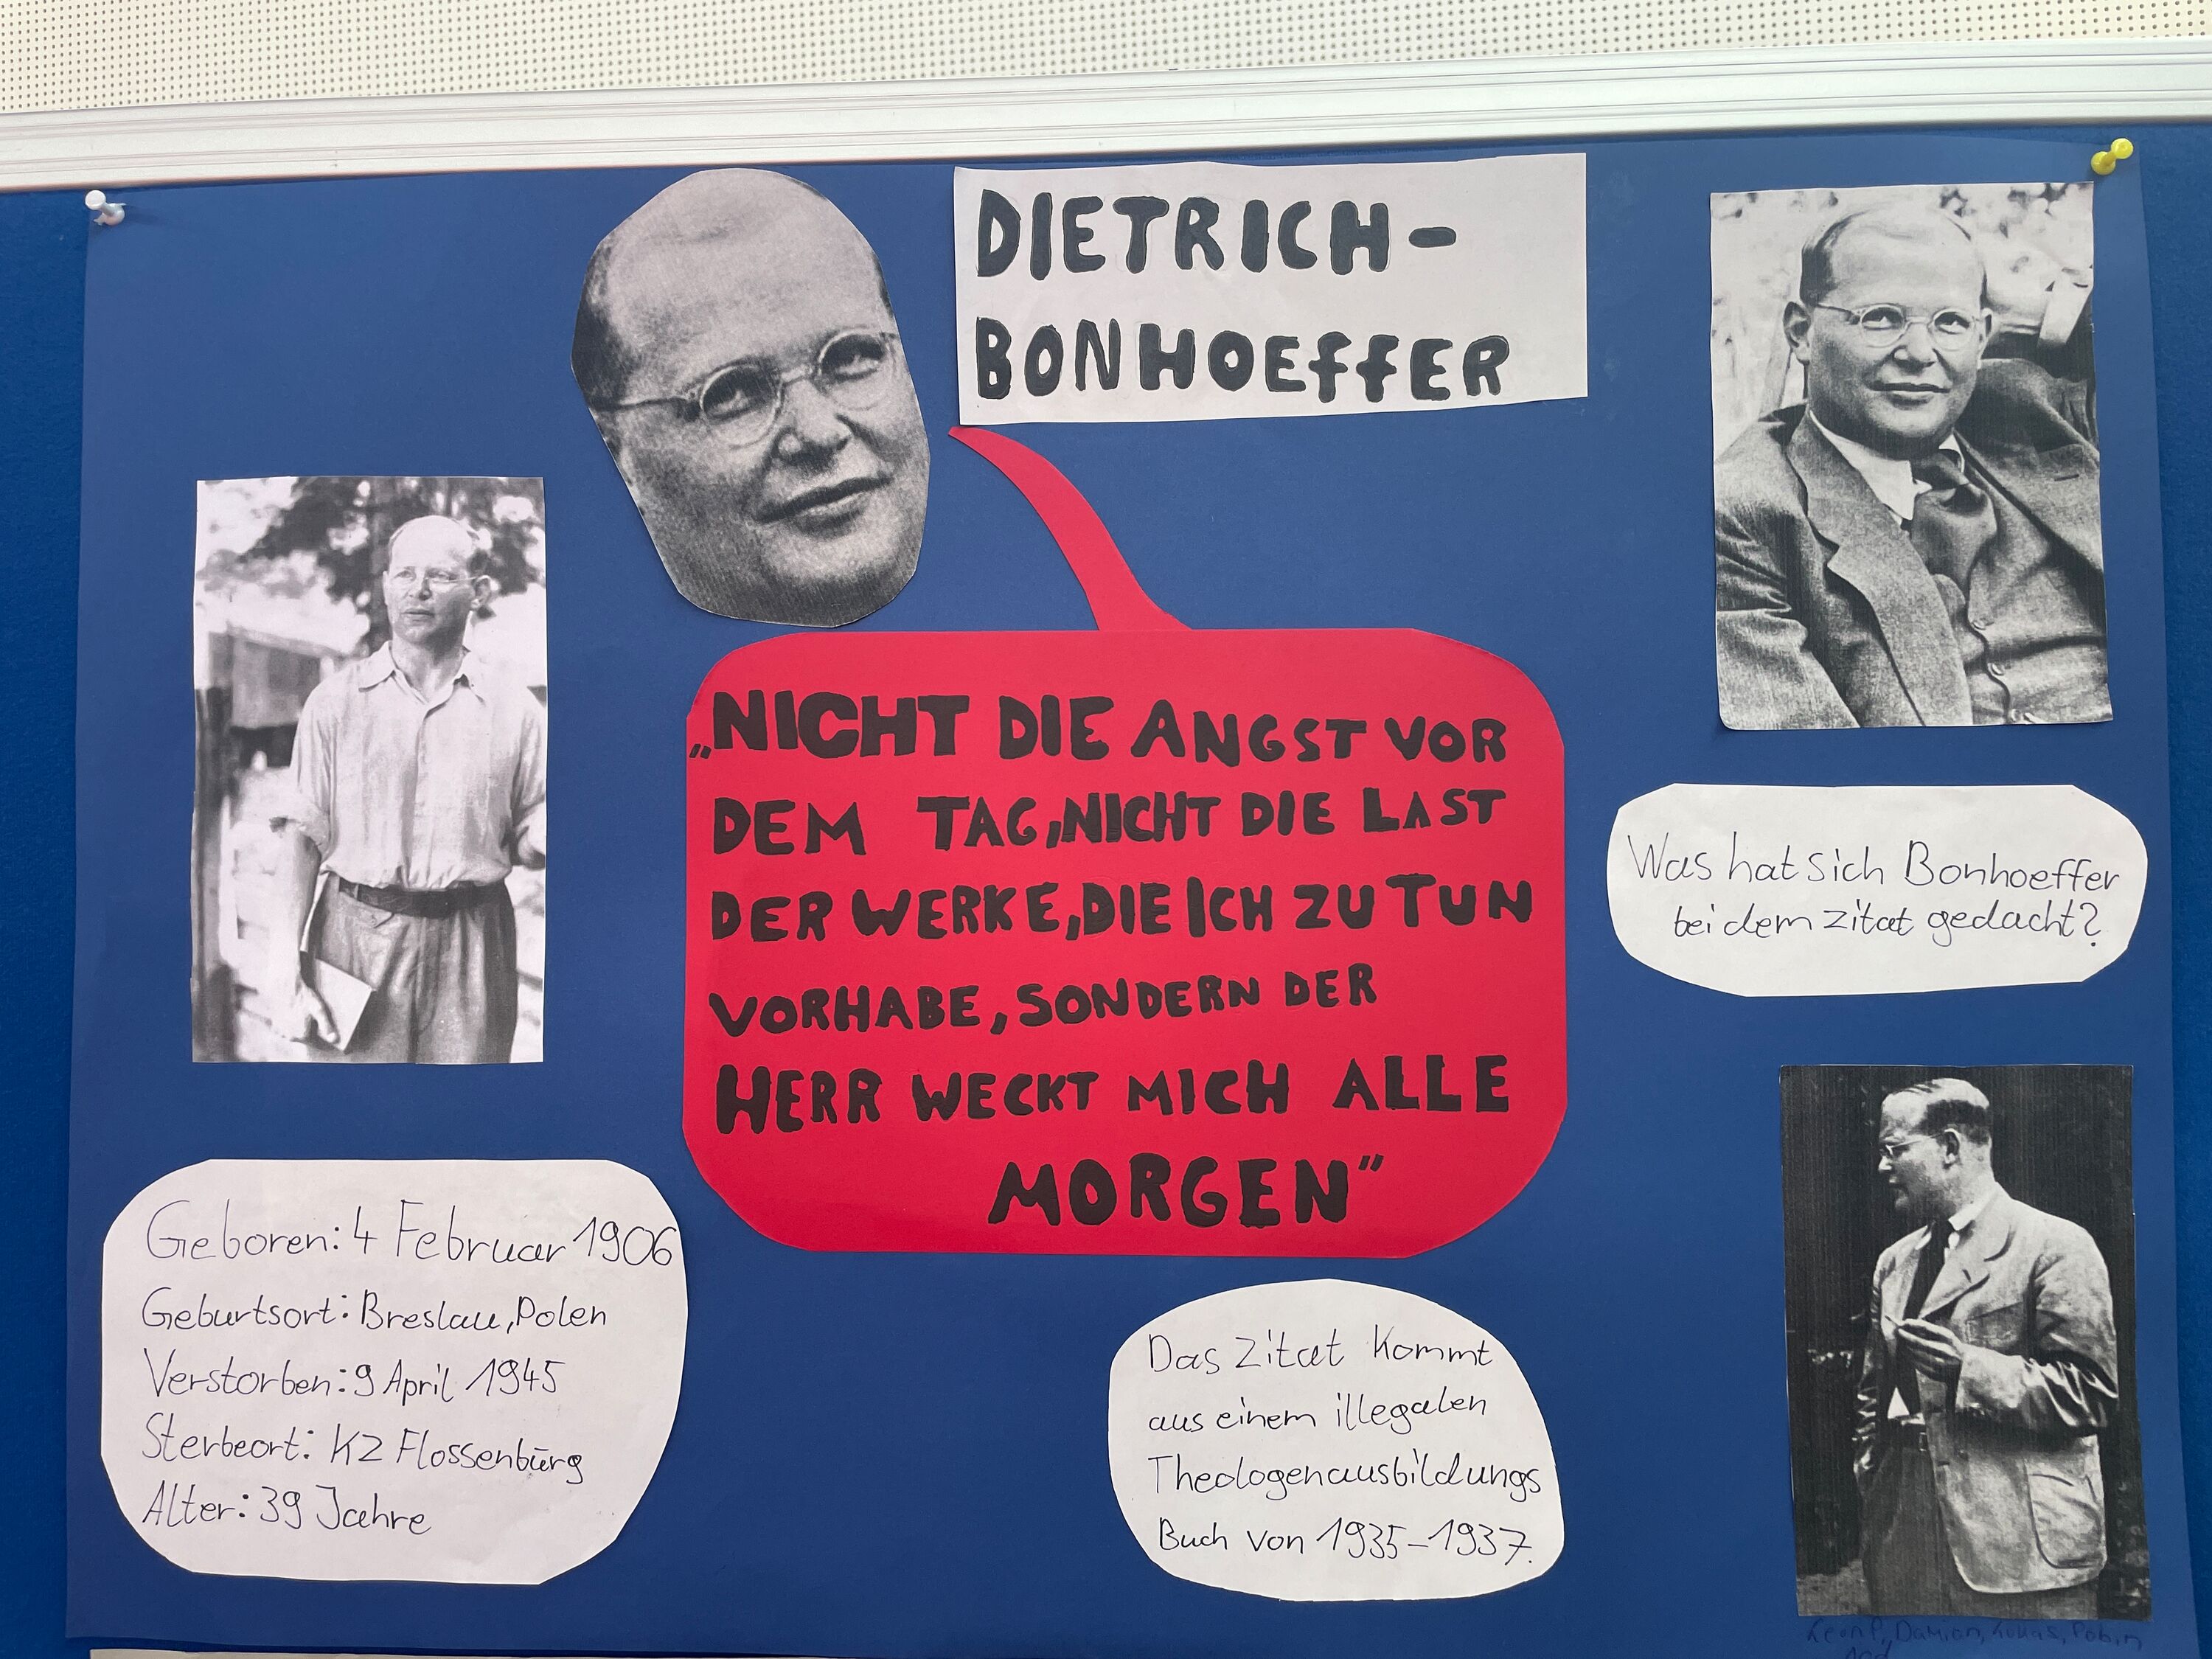 DIETRICH-
BONHOEffER
„NICHT DIE ANGST VOR
DEM TAG, NICHT DIE LAST
DER WERKE, DIE ICH ZU TUN
VORHABE, SONDERN DER
HERR WECKT MICH ALLE
MORGEN"
Was hat sich Bonhoeffer
bei dem zitat gedacht?
Geboren: 4 Februar 1906
Geburtsort: Breslau, Polen
Verstorben: 9 April 1945
Sterbeort: KZ Flossenbürg
Alter: 39 Jahre
Das Zitat kommt
aus einem illegalen
Theologenausbildungs
Buch von 1935-1937.
Leon P., Damian, Lukas, Robin